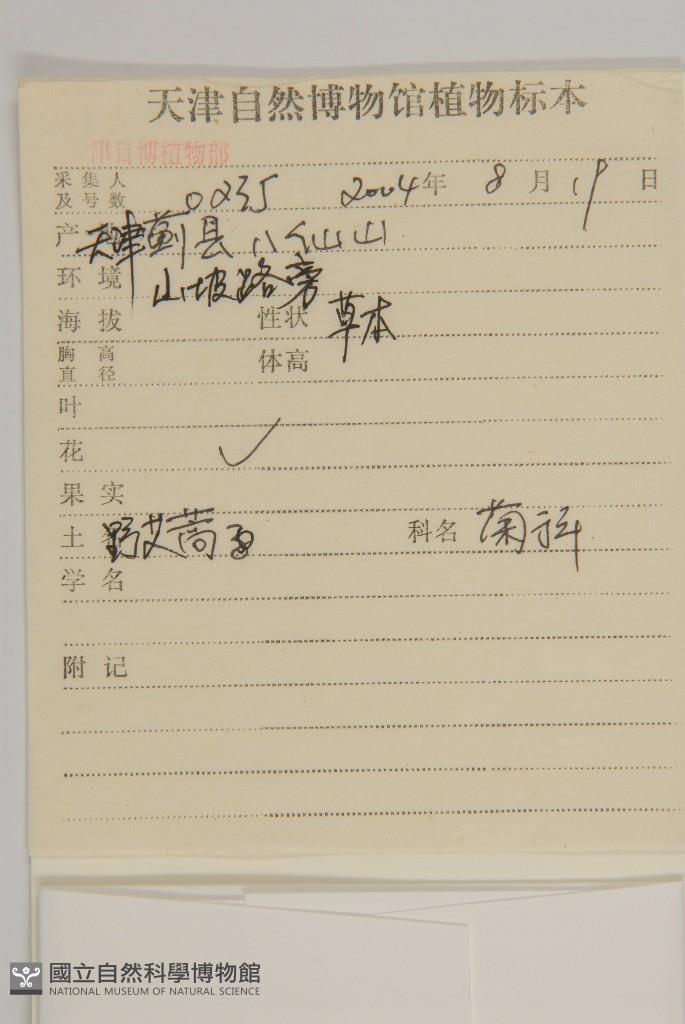 天津自然博物馆植物标本
津自博植物部
采集人及号数 0235 2004年 8月19日
产 天津蓟县八仙山
环境 山坡路旁
海拔 性状 草本
胸高直径 体高
叶
花 ✓
果实
土名 野艾蒿 科名 菊科
学名
附记
國立自然科學博物館
NATIONAL MUSEUM OF NATURAL SCIENCE